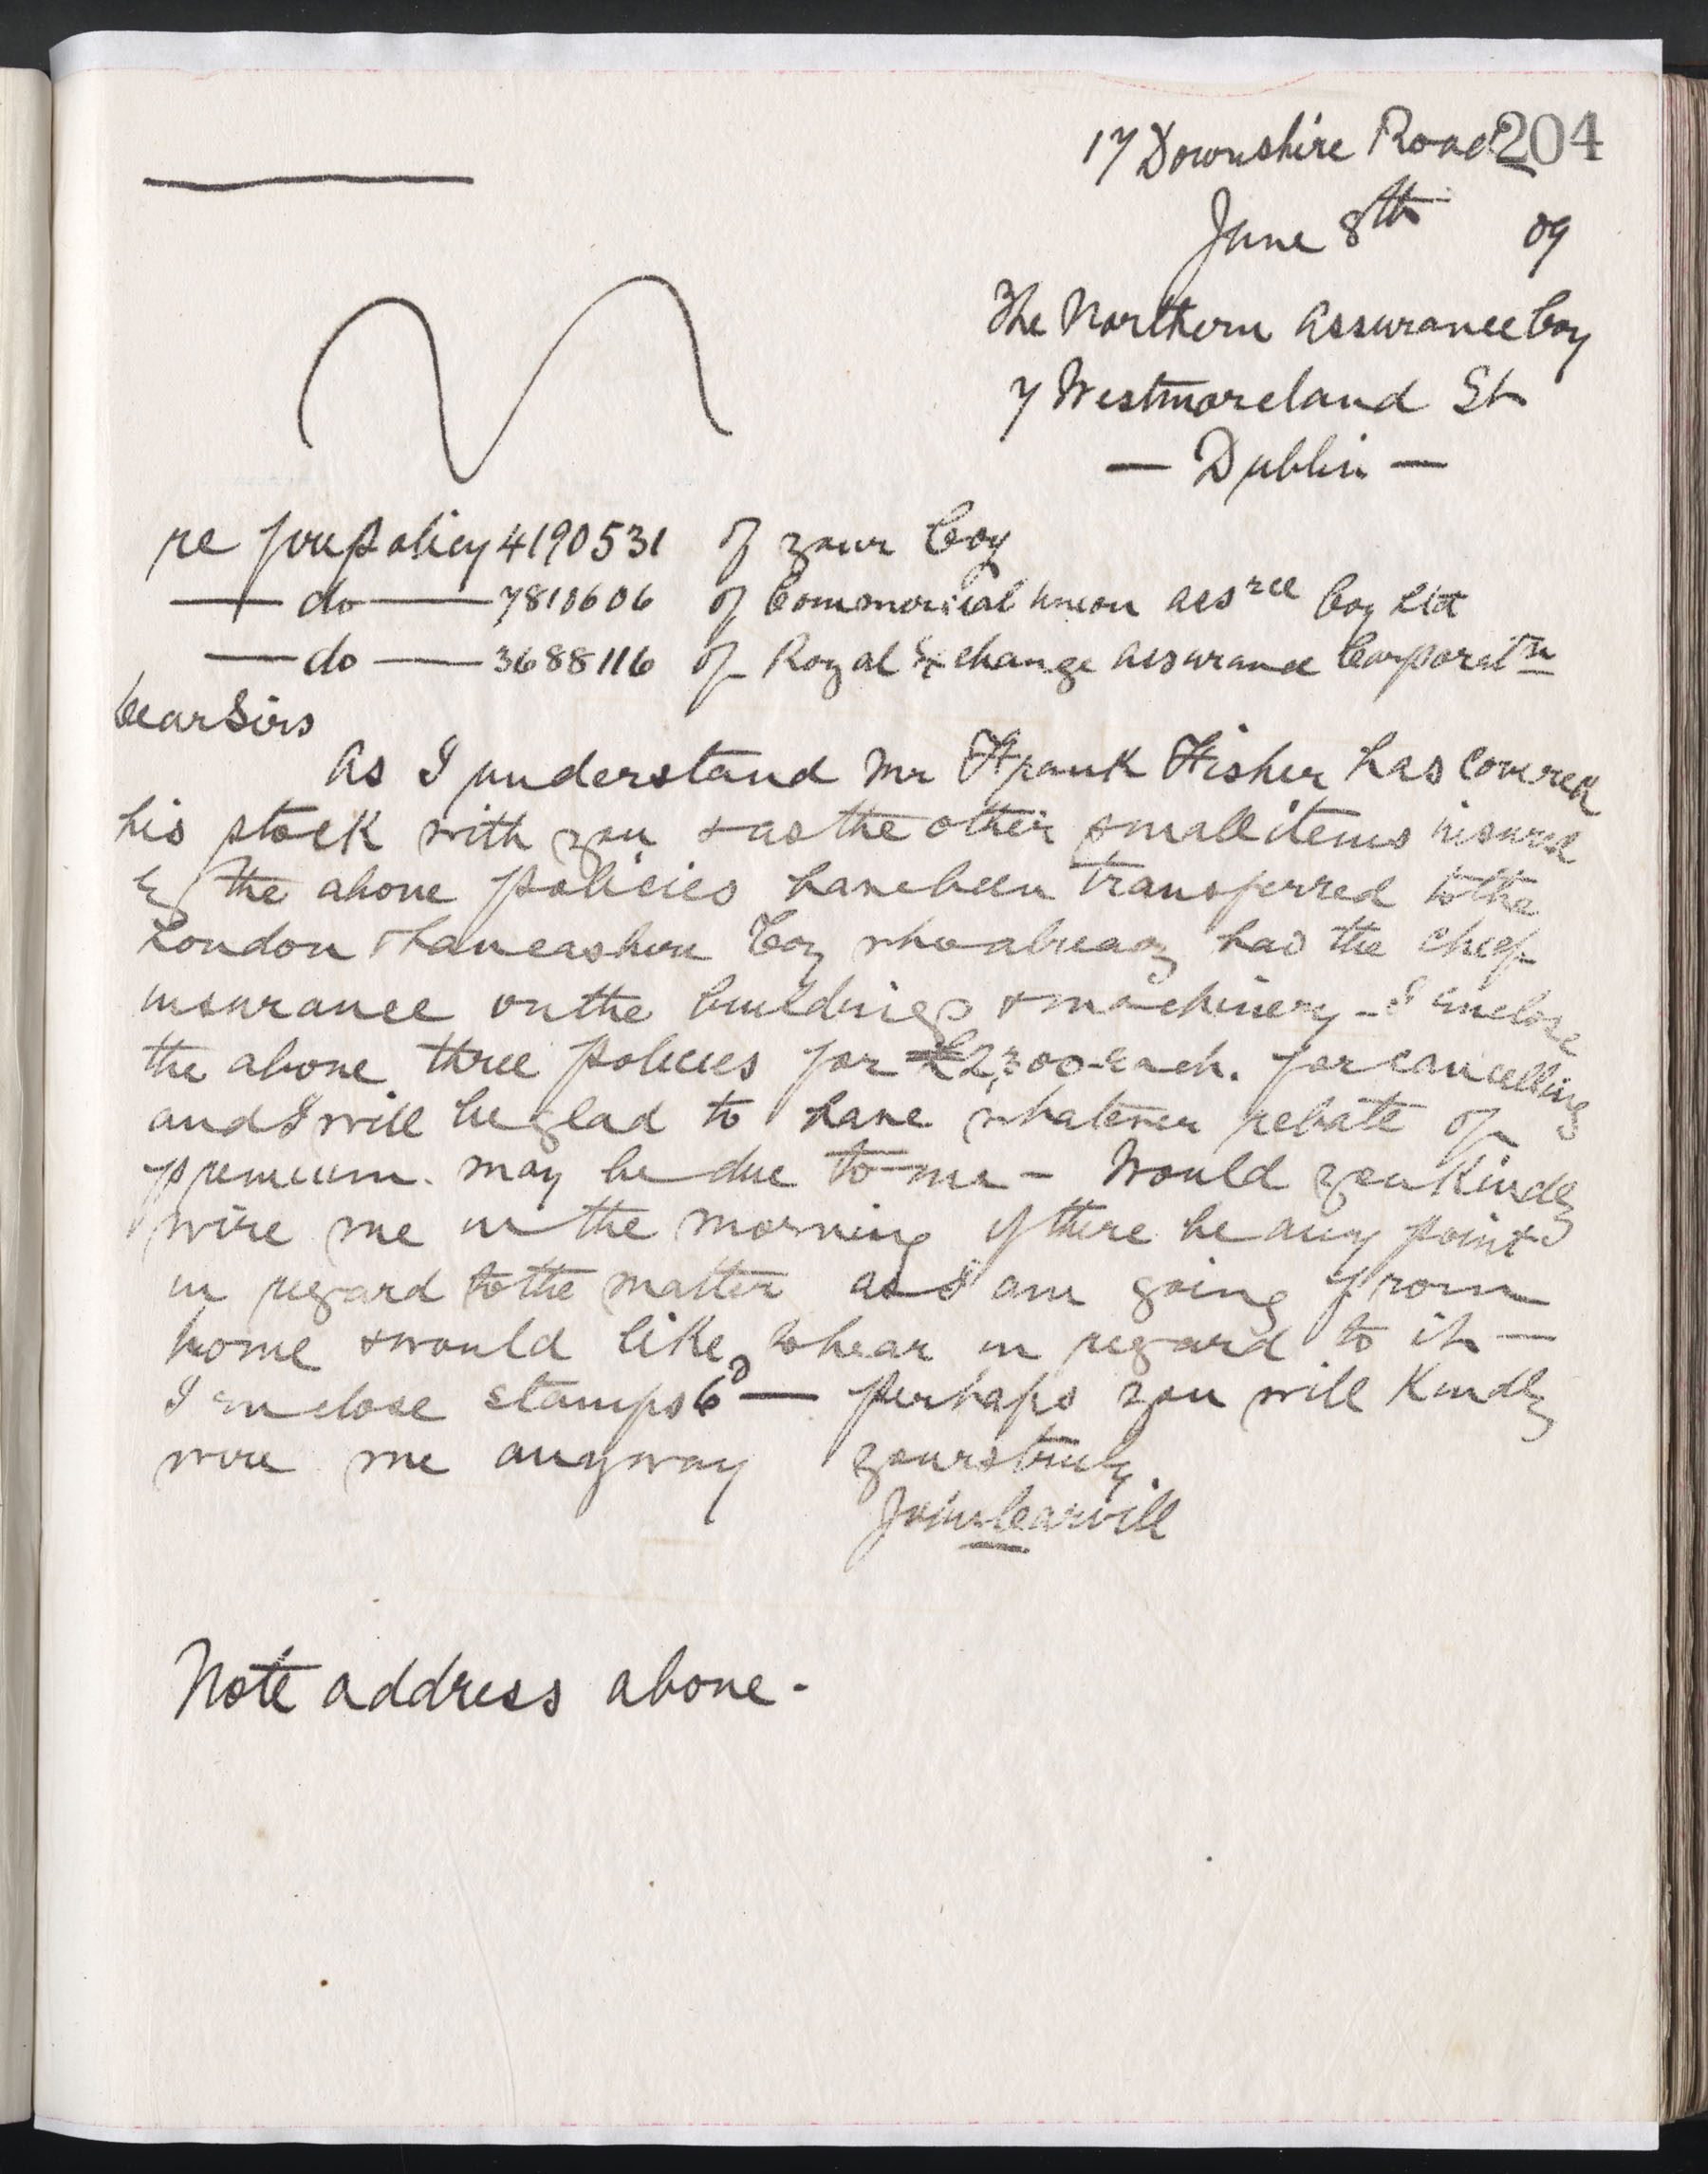 17 Downshire Road 204
June 8th 09
The Northern Assurance Coy
7 Westmoreland St
— Dublin —
re fire policy 4190531 of your Coy
— do — 7810606 of Commercial Union Assce Coy Ltd
— do — 3688116 of Royal Exchange Assurance Corporatn
Dear Sirs
As I understand Mr Frank Fisher has covered
his stock with you & as the other small items insured
by the above policies have been transferred to the
London & Lancashire Coy who already had the chief
insurance on the buildings & machinery - I enclose
the above three policies for £2,300 each. for cancelling
and I will be glad to have whatever rebate of
premium. may be due to me - Would you kindly
wire me in the morning if there be any points
in regard to the matter as I am going from
home & would like to hear in regard to it —
I enclose stamps 6D — perhaps you will kindly
wire me anyway yours truly.
John Carvill
Note address above -